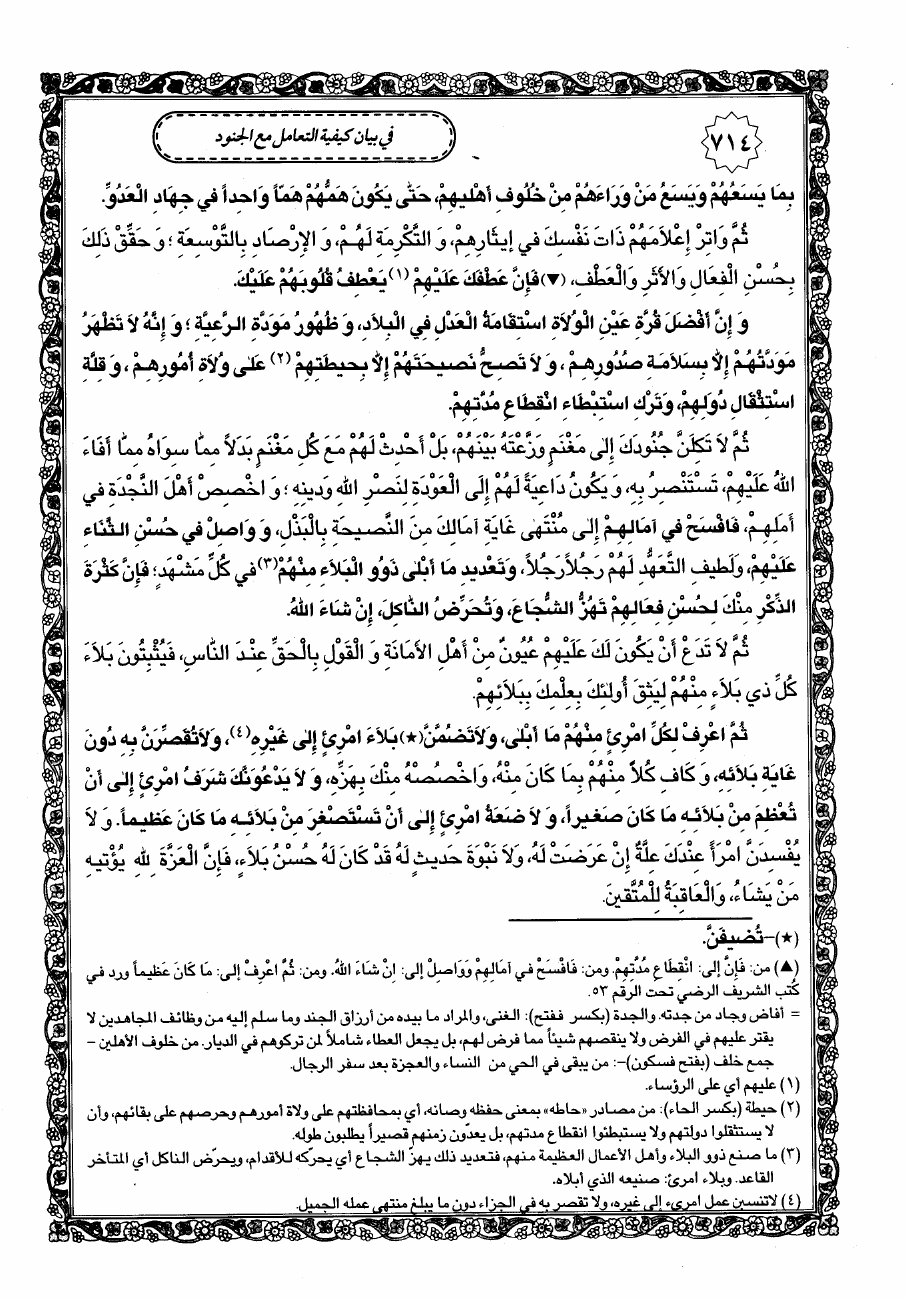 ٧١٤
في بيان كيفية التعامل مع الجنود
بِمَا يَسَعُهُمْ وَيَسَعُ مَنْ وَرَاءَهُمْ مِنْ خُلُوفِ أَهْلِيهِمْ، حَتّٰى يَكُونَ هَمُّهُمْ هَمّاً وَاحِداً في جِهَادِ الْعَدُوِّ.
ثُمَّ وَاتِرْ إِعْلَامَهُمْ ذَاتَ نَفْسِكَ في إيثَارِهِمْ، وَ التَّكْرِمَةِ لَهُمْ، وَ الإِرْصَادِ بِالتَّوْسِعَةِ ؛ وَ حَقِّقْ ذَلِكَ
بِحُسْنِ الْفِعَالِ وَ الأَثَرِ وَالْعَطْفِ، (▼) فَإِنَّ عَطْفَكَ عَلَيْهِمْ (١) يَعْطِفُ قُلُوبَهُمْ عَلَيْكَ.
وَ إِنَّ أَفْضَلَ قُرَّةِ عَيْنِ الْوُلَاةِ اسْتِقَامَةُ الْعَدْلِ فِي الْبِلَادِ، وَ ظُهُورُ مَوَدَّةِ الرَّعِيَّةِ ؛ وَ إِنَّهُ لَا تَظْهَرُ
مَوَدَّتُهُمْ إِلاَّ بِسَلَامَةِ صُدُورِهِمْ ، وَ لَا تَصِحُّ نَصيحَتُهُمْ إِلاَّ بِحيطَتِهِمْ (٢) عَلىٰ وُلَاةِ أُمُورِهِمْ ، وَ قِلَّةِ
اسْتِثْقَالِ دُوَلِهِمْ، وَتَرْكِ اسْتِبْطَاءِ انْقِطَاعِ مُدَّتِهِمْ.
ثُمَّ لَا تَكِلَنَّ جُنُودَكَ إِلىٰ مَغْنَمٍ وَزَّعْتَهُ بَيْنَهُمْ، بَلْ أَحْدِثْ لَهُمْ مَعَ كُلِّ مَغْنَمٍ بَدَلاً مِمَّا سِوَاهُ مِمَّا أَفَاءَ
اللهُ عَلَيْهِمْ، تَسْتَنْصِرُ بِهِ، وَ يَكُونُ دَاعِيَةً لَهُمْ إِلَى الْعَوْدَةِ لِنَصْرِ اللهِ وَدينِهِ ؛ وَ اخْصِصْ أَهْلَ النَّجْدَةِ في
أَمَلِهِمْ، فَافْسَحْ في آمَالِهِمْ إِلىٰ مُنْتَهىٰ غَايَةِ آمَالِكَ مِنَ النَّصيحَةِ بِالْبَذْلِ، وَ وَاصِلْ في حُسْنِ الثَّنَاءِ
عَلَيْهِمْ، وَلَطيفِ التَّعَهُّدِ لَهُمْ رَجُلاً رَجُلاً، وَتَعْديدِ مَا أَبْلىٰ ذَوُو الْبَلَاءِ مِنْهُمْ (٣) في كُلِّ مَشْهَدٍ؛ فَإِنَّ كَثْرَةَ
الذِّكْرِ مِنْكَ لِحُسْنِ فِعَالِهِمْ تَهُزُّ الشُّجَاعَ، وَتُحَرِّضُ النَّاكِلَ، إِنْ شَاءَ اللهُ.
ثُمَّ لَا تَدَعْ أَنْ يَكُونَ لَكَ عَلَيْهِمْ عُيُونٌ مِنْ أَهْلِ الأَمَانَةِ وَ الْقَوْلِ بِالْحَقِّ عِنْدَ النَّاسِ، فَيُثْبِتُونَ بَلَاءَ
كُلِّ ذي بَلَاءٍ مِنْهُمْ لِيَثِقَ أُولَئِكَ بِعِلْمِكَ بِبَلَائِهِمْ.
ثُمَّ اعْرِفْ لِكُلِّ امْرِئٍ مِنْهُمْ مَا أَبْلىٰ، وَلَا تَضُمَّنَّ (★) بَلَاءَ امْرِئٍ إِلىٰ غَيْرِهِ (٤)، وَلَا تُقَصِّرَنَّ بِهِ دُونَ
غَايَةِ بَلَائِهِ، وَ كَافِ كُلاًّ مِنْهُمْ بِمَا كَانَ مِنْهُ، وَاخْصُصْهُ مِنْكَ بِهَزِّهِ، وَ لَا يَدْعُوَنَّكَ شَرَفُ امْرِئٍ إِلىٰ أَنْ
تُعْظِمَ مِنْ بَلَائِهِ مَا كَانَ صَغيراً، وَ لَا ضَعَةُ امْرِئٍ إِلىٰ أَنْ تَسْتَصْغِرَ مِنْ بَلَائِهِ مَا كَانَ عَظيماً. وَ لَا
يُفْسِدَنَّ امْرَأً عِنْدَكَ عِلَّةٌ إِنْ عَرَضَتْ لَهُ، وَلَا نَبْوَةُ حَديثٍ لَهُ قَدْ كَانَ لَهُ حُسْنُ بَلَاءٍ، فَإِنَّ الْعِزَّةَ لِلّٰهِ يُؤْتيهِ
مَنْ يَشَاءُ، وَالْعَاقِبَةُ لِلْمُتَّقينَ.
(★)-تُضيفَنَّ.
(▲) من: فَإِنَّ إلى: انْقِطَاعِ مُدَّتِهِمْ. ومن: فَافْسَحْ في آمَالِهِمْ وَوَاصِلْ إلى: إِنْ شَاءَ اللهُ. ومن: ثُمَّ اعْرِفْ إلى: مَا كَانَ عَظيماً ورد في
كُتب الشريف الرضي تحت الرقم ٥٣.
= أفاض وجاد من جدته. والجدة (بكسر ففتح): الغنى، والمراد ما بيده من أرزاق الجند وما سلم إليه من وظائف المجاهدين لا
يقتر عليهم في الفرض ولا ينقصهم شيئاً مما فرض لهم، بل يجعل العطاء شاملاً لمن تركوهم في الديار. من خلوف الأهلين -
جمع خلف (بفتح فسكون)-: من يبقى في الحي من النساء والعجزة بعد سفر الرجال.
(١) عليهم أي على الرؤساء.
(٢) حيطة (بكسر الحاء): من مصادر «حاطه» بمعنى حفظه وصانه، أي بمحافظتهم على ولاة أمورهم وحرصهم على بقائهم، وأن
لا يستثقلوا دولتهم ولا يستبطئوا انقطاع مدتهم، بل يعدّون زمنهم قصيراً يطلبون طوله.
(٣) ما صنع ذوو البلاء وأهل الأعمال العظيمة منهم، فتعديد ذلك يهزّ الشجاع أي يحرّكه للأقدام، ويحرّض الناكل أي المتأخر
القاعد. وبلاء امرئ: صنيعه الذي أبلاه.
(٤) لا تنسبن عمل امرىء إلى غيره، ولا تقصر به في الجزاء دون ما يبلغ منتهى عمله الجميل.